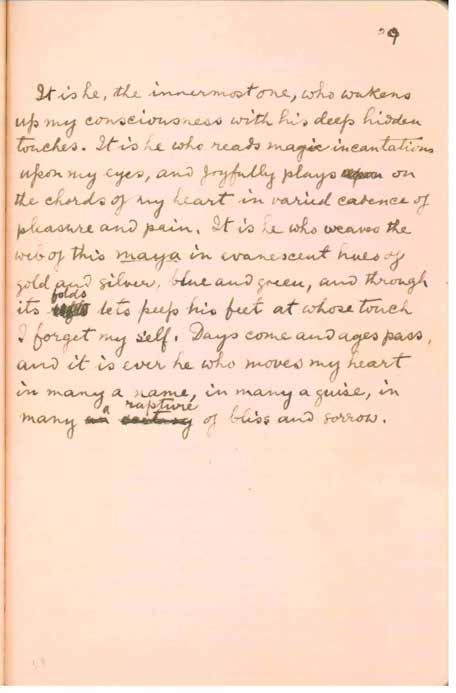 29
It is he, the innermost one, who wakens
up my consciousness with his deep hidden
touches. It is he who reads magic incantations
upon my eyes, and joyfully plays upon on
the chords of my heart in varied cadence of
pleasure and pain. It is he who weaves the
web of this maya in evanescent hues of
gold and silver, blue and green, and through
folds
its lets peep his feet at whose touch
I forget my self. Days come and ages pass,
and it is ever he who moves my heart
in many a name, in many a guise, in
a rapture
many an ecstasy of bliss and sorrow.